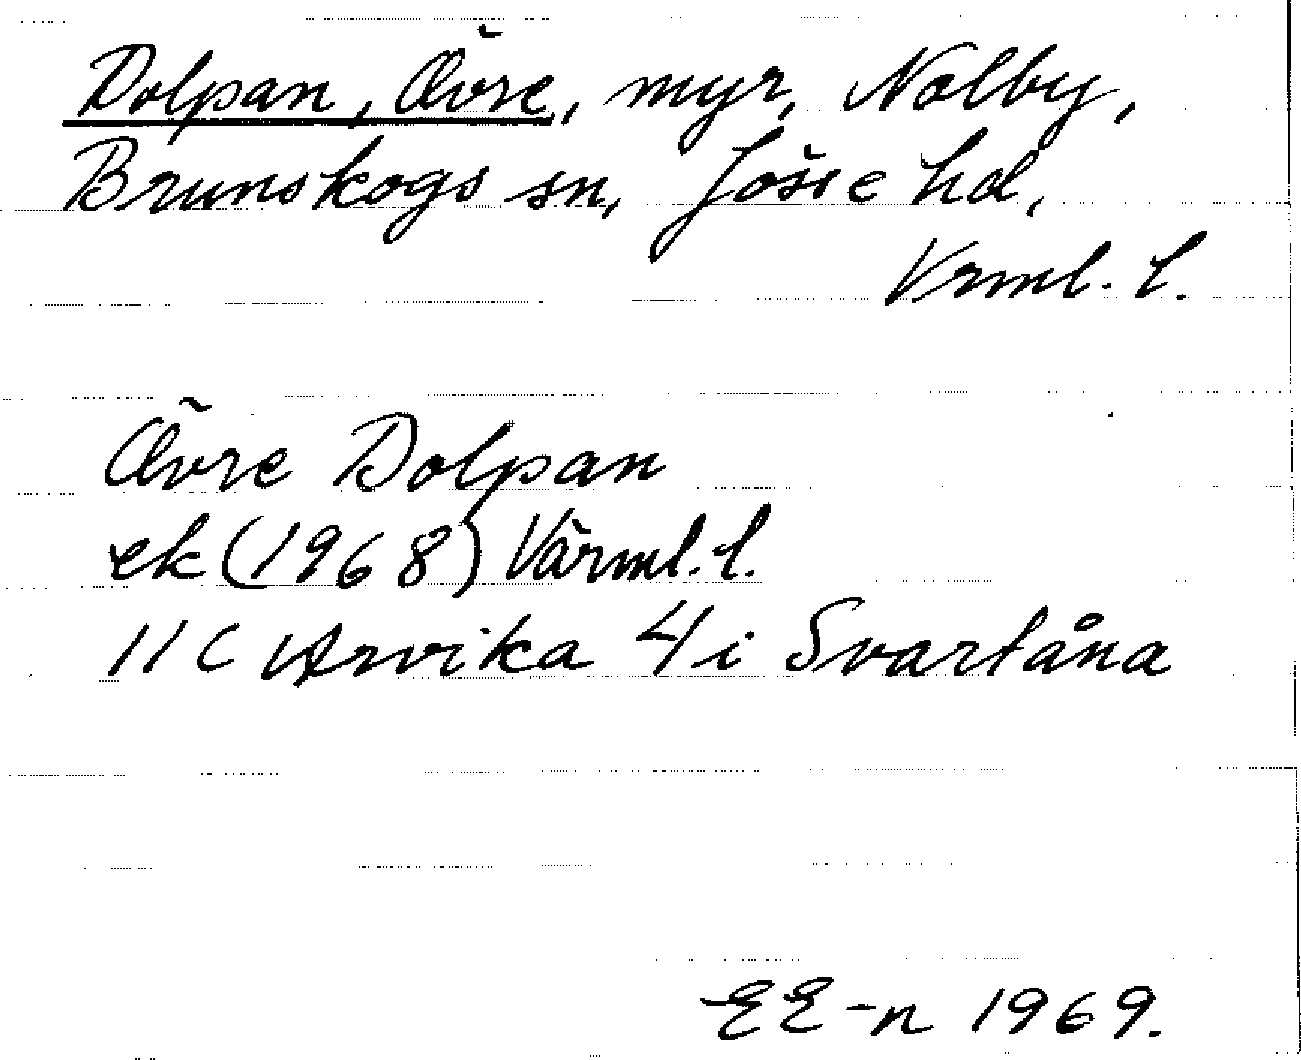 Dolpan, Övre, myr, Nolby,
Brunskogs sn, Jösse hd,
Vrml. l.
Övre Dolpan
ek (1968) Värml. l.
11 C Arvika 4 i Svartåna
EE-n 1969.